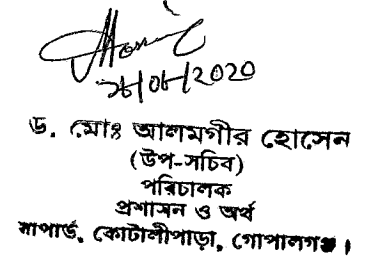 ড. মোঃ আলমগীর হোসেন
(উপ-সচিব)
পরিচালক
প্রশাসন ও অর্থ
বাপার্ড, কোটালীপাড়া, গোপালগঞ্জ।